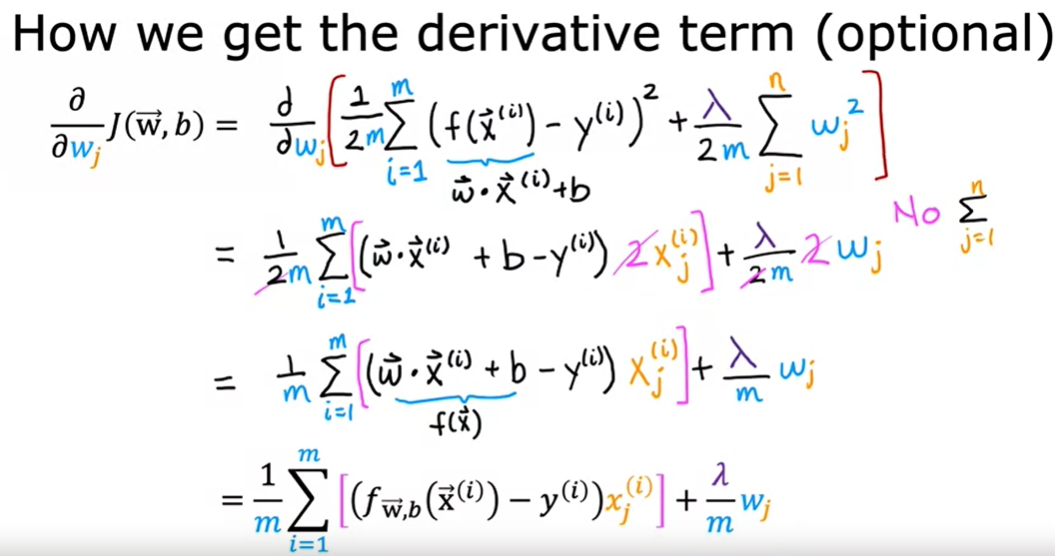 How we get the derivative term (optional)
∂/∂wⱼ J(w⃗, b) = ∂/∂wⱼ [ 1/2m ∑ᵢ₌₁ᵐ (f(x⃗⁽ⁱ⁾) - y⁽ⁱ⁾)² + λ/2m ∑ⱼ₌₁ⁿ wⱼ² ]
w⃗ · x⃗⁽ⁱ⁾ + b
= 1/2m ∑ᵢ₌₁ᵐ [(w⃗ · x⃗⁽ⁱ⁾ + b - y⁽ⁱ⁾) 2 xⱼ⁽ⁱ⁾] + λ/2m 2 wⱼ No ∑ⱼ₌₁ⁿ
= 1/m ∑ᵢ₌₁ᵐ [(w⃗ · x⃗⁽ⁱ⁾ + b - y⁽ⁱ⁾) xⱼ⁽ⁱ⁾] + λ/m wⱼ
f(x⃗)
= 1/m ∑ᵢ₌₁ᵐ [(f_w⃗,b(x⃗⁽ⁱ⁾) - y⁽ⁱ⁾)xⱼ⁽ⁱ⁾] + λ/m wⱼ